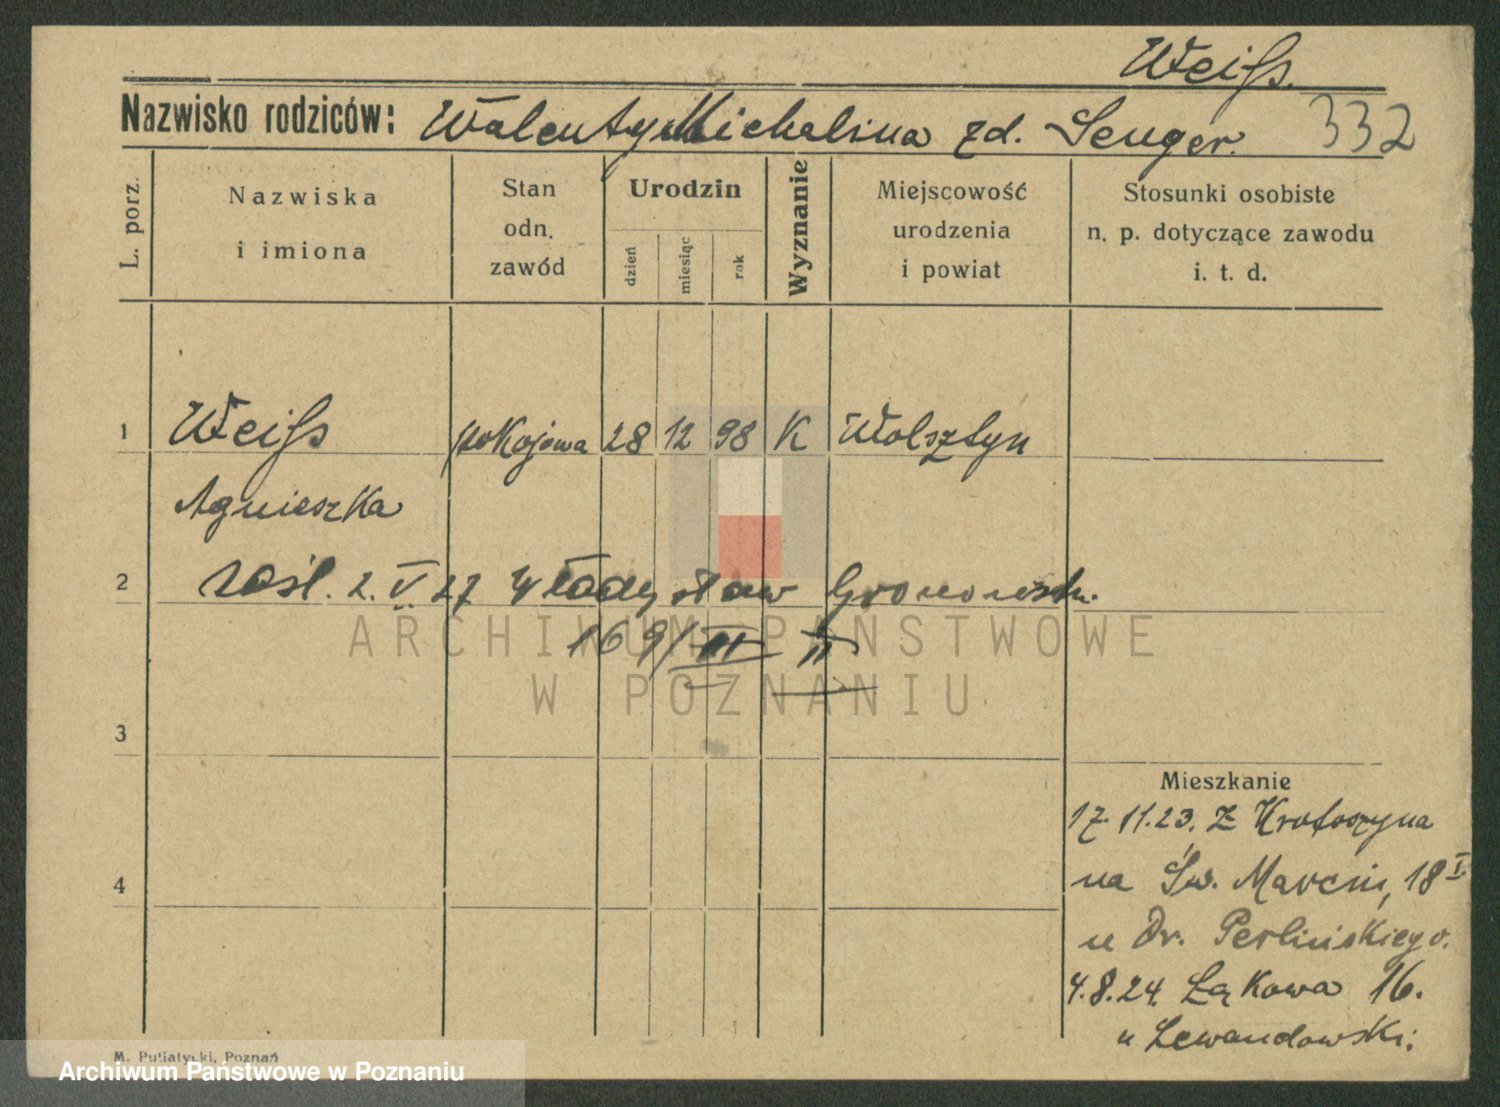 Weiß.
Nazwisko rodziców: Walenty Michalina zd. Senger. 332
L. porz.
Nazwiska i imiona
Stan odn. zawód
Urodzin
dzień miesiąc rok
Wyznanie
Miejscowość urodzenia i powiat
Stosunki osobiste n. p. dotyczące zawodu i. t. d.
1 Weiß pokojowa 28 12 98 K Wolsztyn
Agnieszka
2 zaśl. 2. V 27 Władysław Gronowski.
169/III II
ARCHIWUM PAŃSTWOWE
W POZNANIU
3
4
Mieszkanie
17.11.23. Z Krotoszyna
na Św. Marcin, 18 I
u Dr. Perlińskiego.
4.8.24. Łąkowa 16.
u Lewandowski.
M. Putiatycki, Poznań
Archiwum Państwowe w Poznaniu